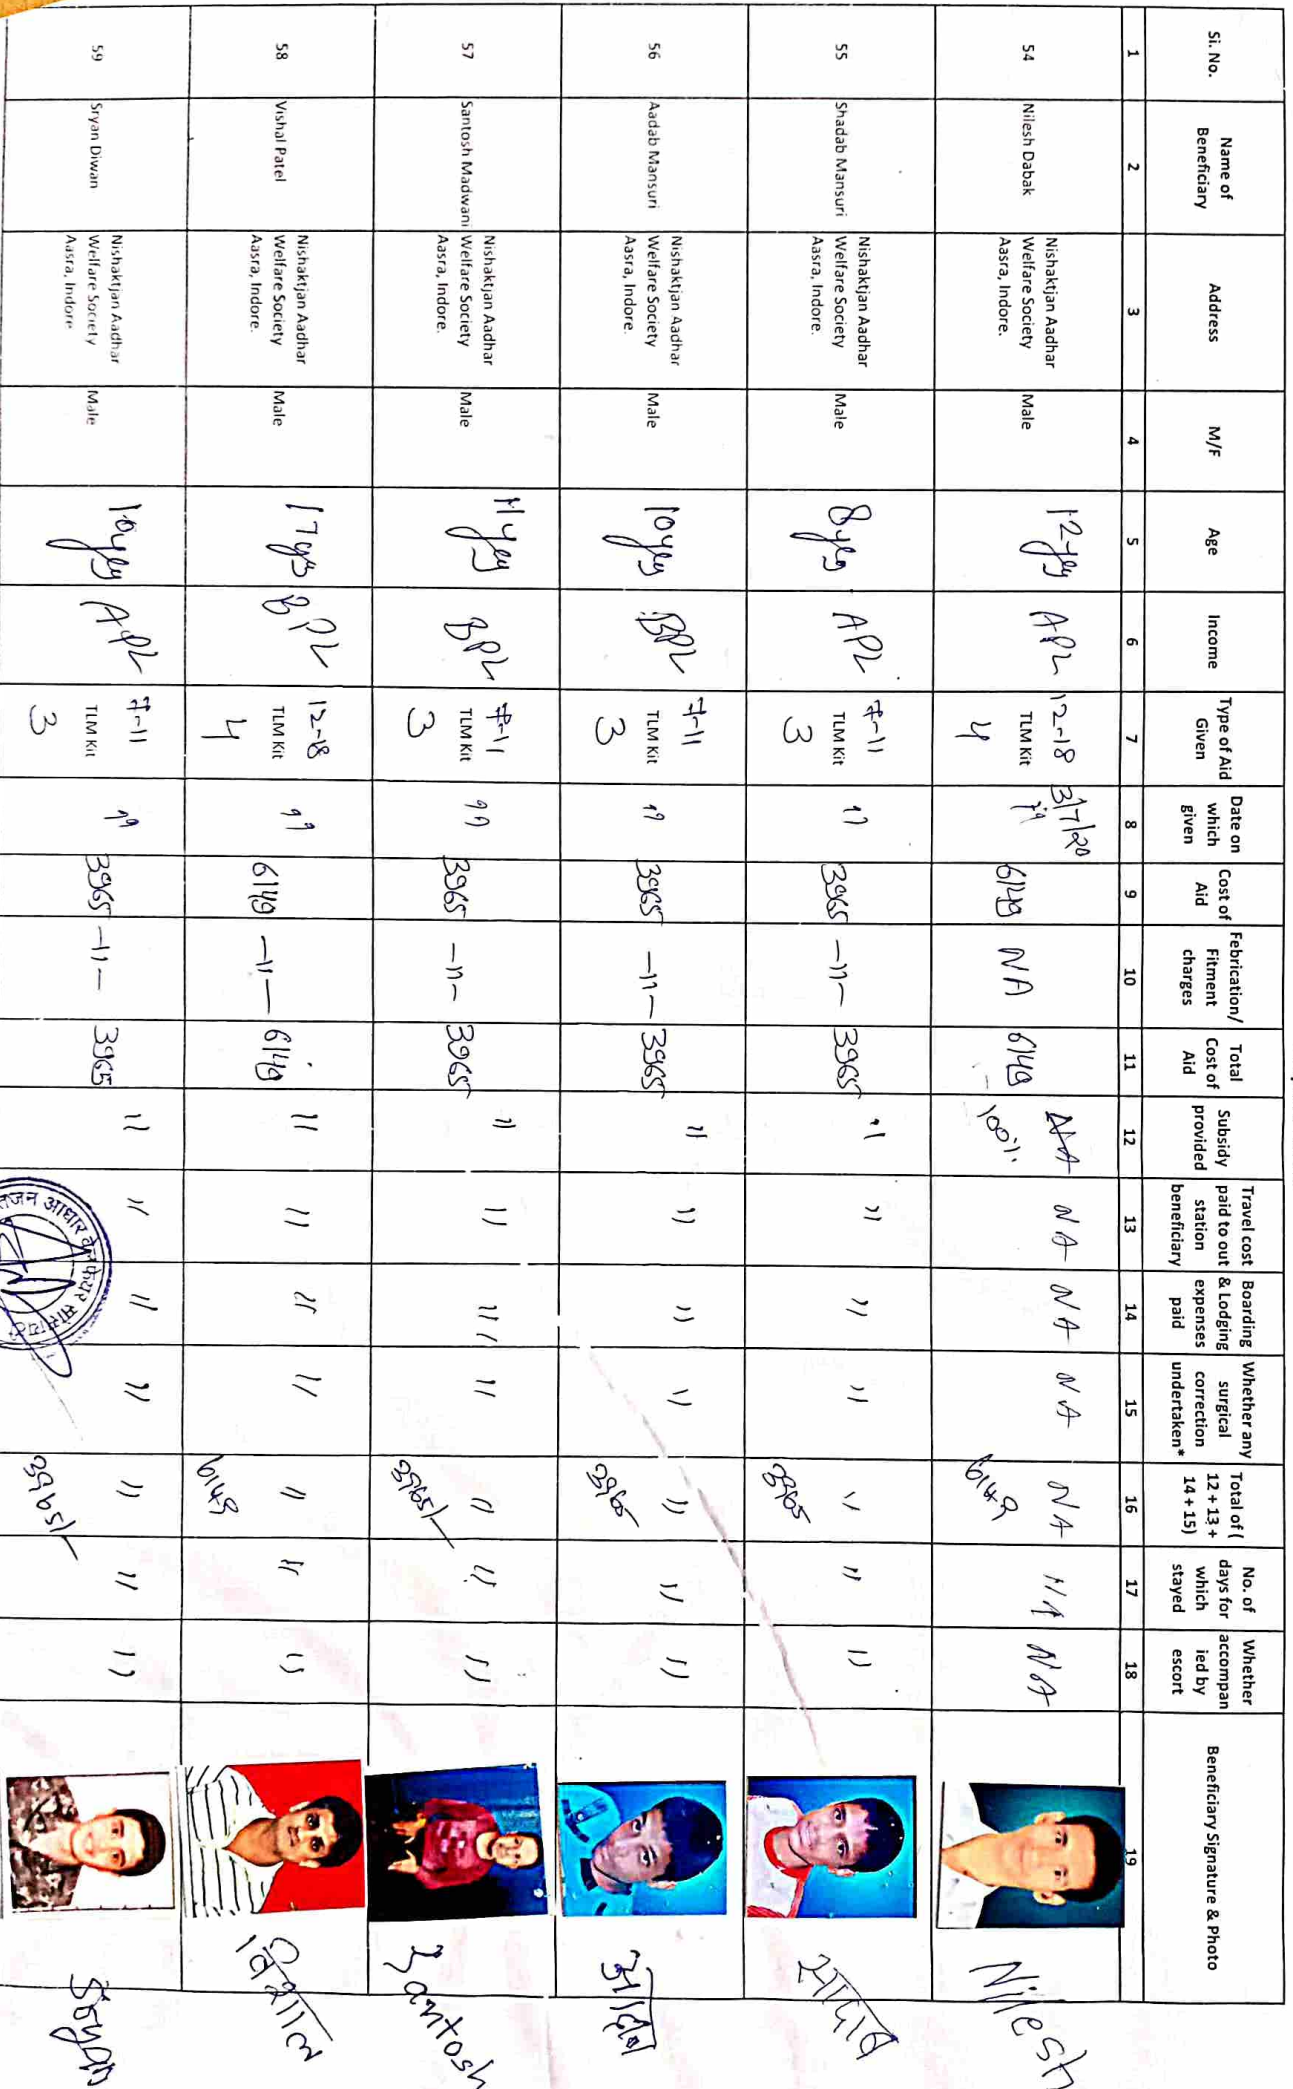 Si. No.
Name of
Beneficiary
Address
M/F
Age
Income
Type of Aid
Given
Date on
which
given
Cost of
Aid
Febrication/
Fitment
charges
Total
Cost of
Aid
Subsidy
provided
Travel cost
paid to out
station
beneficiary
Boarding
& Lodging
expenses
paid
Whether any
surgical
correction
undertaken*
Total of (
12 + 13 +
14 + 15)
No. of
days for
which
stayed
Whether
accompan
ied by
escort
Beneficiary Signature & Photo
1 2 3 4 5 6 7 8 9 10 11 12 13 14 15 16 17 18 19
54
Nilesh Dabak
Nishaktjan Aadhar
Welfare Society
Aasra, Indore.
Male
12 yrs
APL
12-18
TLM Kit
4
3/7/20
6149
NA
6149
NA
100%
NA
NA
NA
NA
6149
NA
NA
Nilesh
55
Shadab Mansuri
Nishaktjan Aadhar
Welfare Society
Aasra, Indore.
Male
8 yrs
APL
7-11
TLM Kit
3
"
3965
-11-
3965
"
"
"
"
"
3965
"
"
सादाब
56
Aadab Mansuri
Nishaktjan Aadhar
Welfare Society
Aasra, Indore.
Male
10 yrs
BPL
7-11
TLM Kit
3
"
3965
-11-
3965
"
"
"
"
"
3965
"
"
57
Santosh Madwani
Nishaktjan Aadhar
Welfare Society
Aasra, Indore.
Male
11 yrs
BPL
7-11
TLM Kit
3
"
3965
-11-
3965
"
"
"
"
"
3965/-
"
"
Santosh
58
Vishal Patel
Nishaktjan Aadhar
Welfare Society
Aasra, Indore.
Male
17 yrs
BPL
12-18
TLM Kit
4
"
6149
-11-
6149
"
"
"
"
"
6149
"
"
विशाल
59
Sryan Diwan
Nishaktjan Aadhar
Welfare Society
Aasra, Indore
Male
10 yrs
APL
7-11
TLM Kit
3
"
3965
-11-
3965
"
"
"
"
"
3965/-
"
"
आधार वेलफेयर सोसायटी